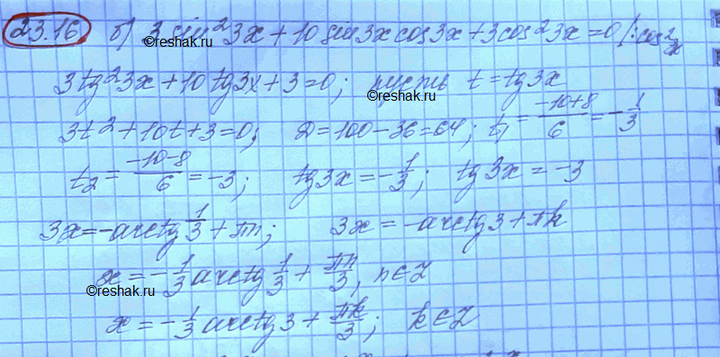 23.16 б) 3 sin²3x + 10 sin3x cos3x + 3cos²3x = 0 /: cos²x
©reshak.ru
3tg²3x + 10tg3x + 3 = 0; пусть t = tg3x
©reshak.ru
3t² + 10t + 3 = 0; D = 100 - 36 = 64; t₁ = (-10+8)/6 = -1/3
t₂ = (-10-8)/6 = -3; tg3x = -1/3; tg3x = -3
3x = -arctg 1/3 + πn; 3x = -arctg3 + πk
x = -1/3 arctg 1/3 + πn/3, n∈Z
©reshak.ru
x = -1/3 arctg3 + πk/3; k∈Z